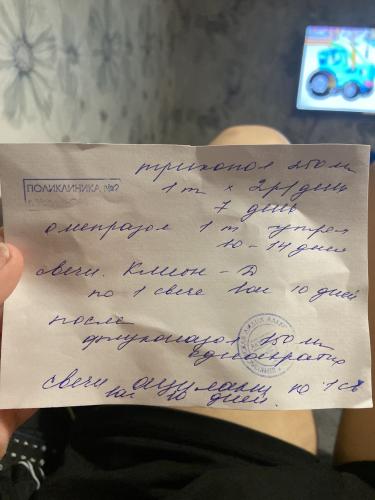 ПОЛИКЛИНИКА №2
трихопол 250 мг
1 т × 2 р/день
7 дней
омепразол 1 т утром
10-14 дней
свечи Клион-Д
по 1 свече 10 дней
после
флуконазол 150 мг
однократно
свечи по 1 св
10 дней.